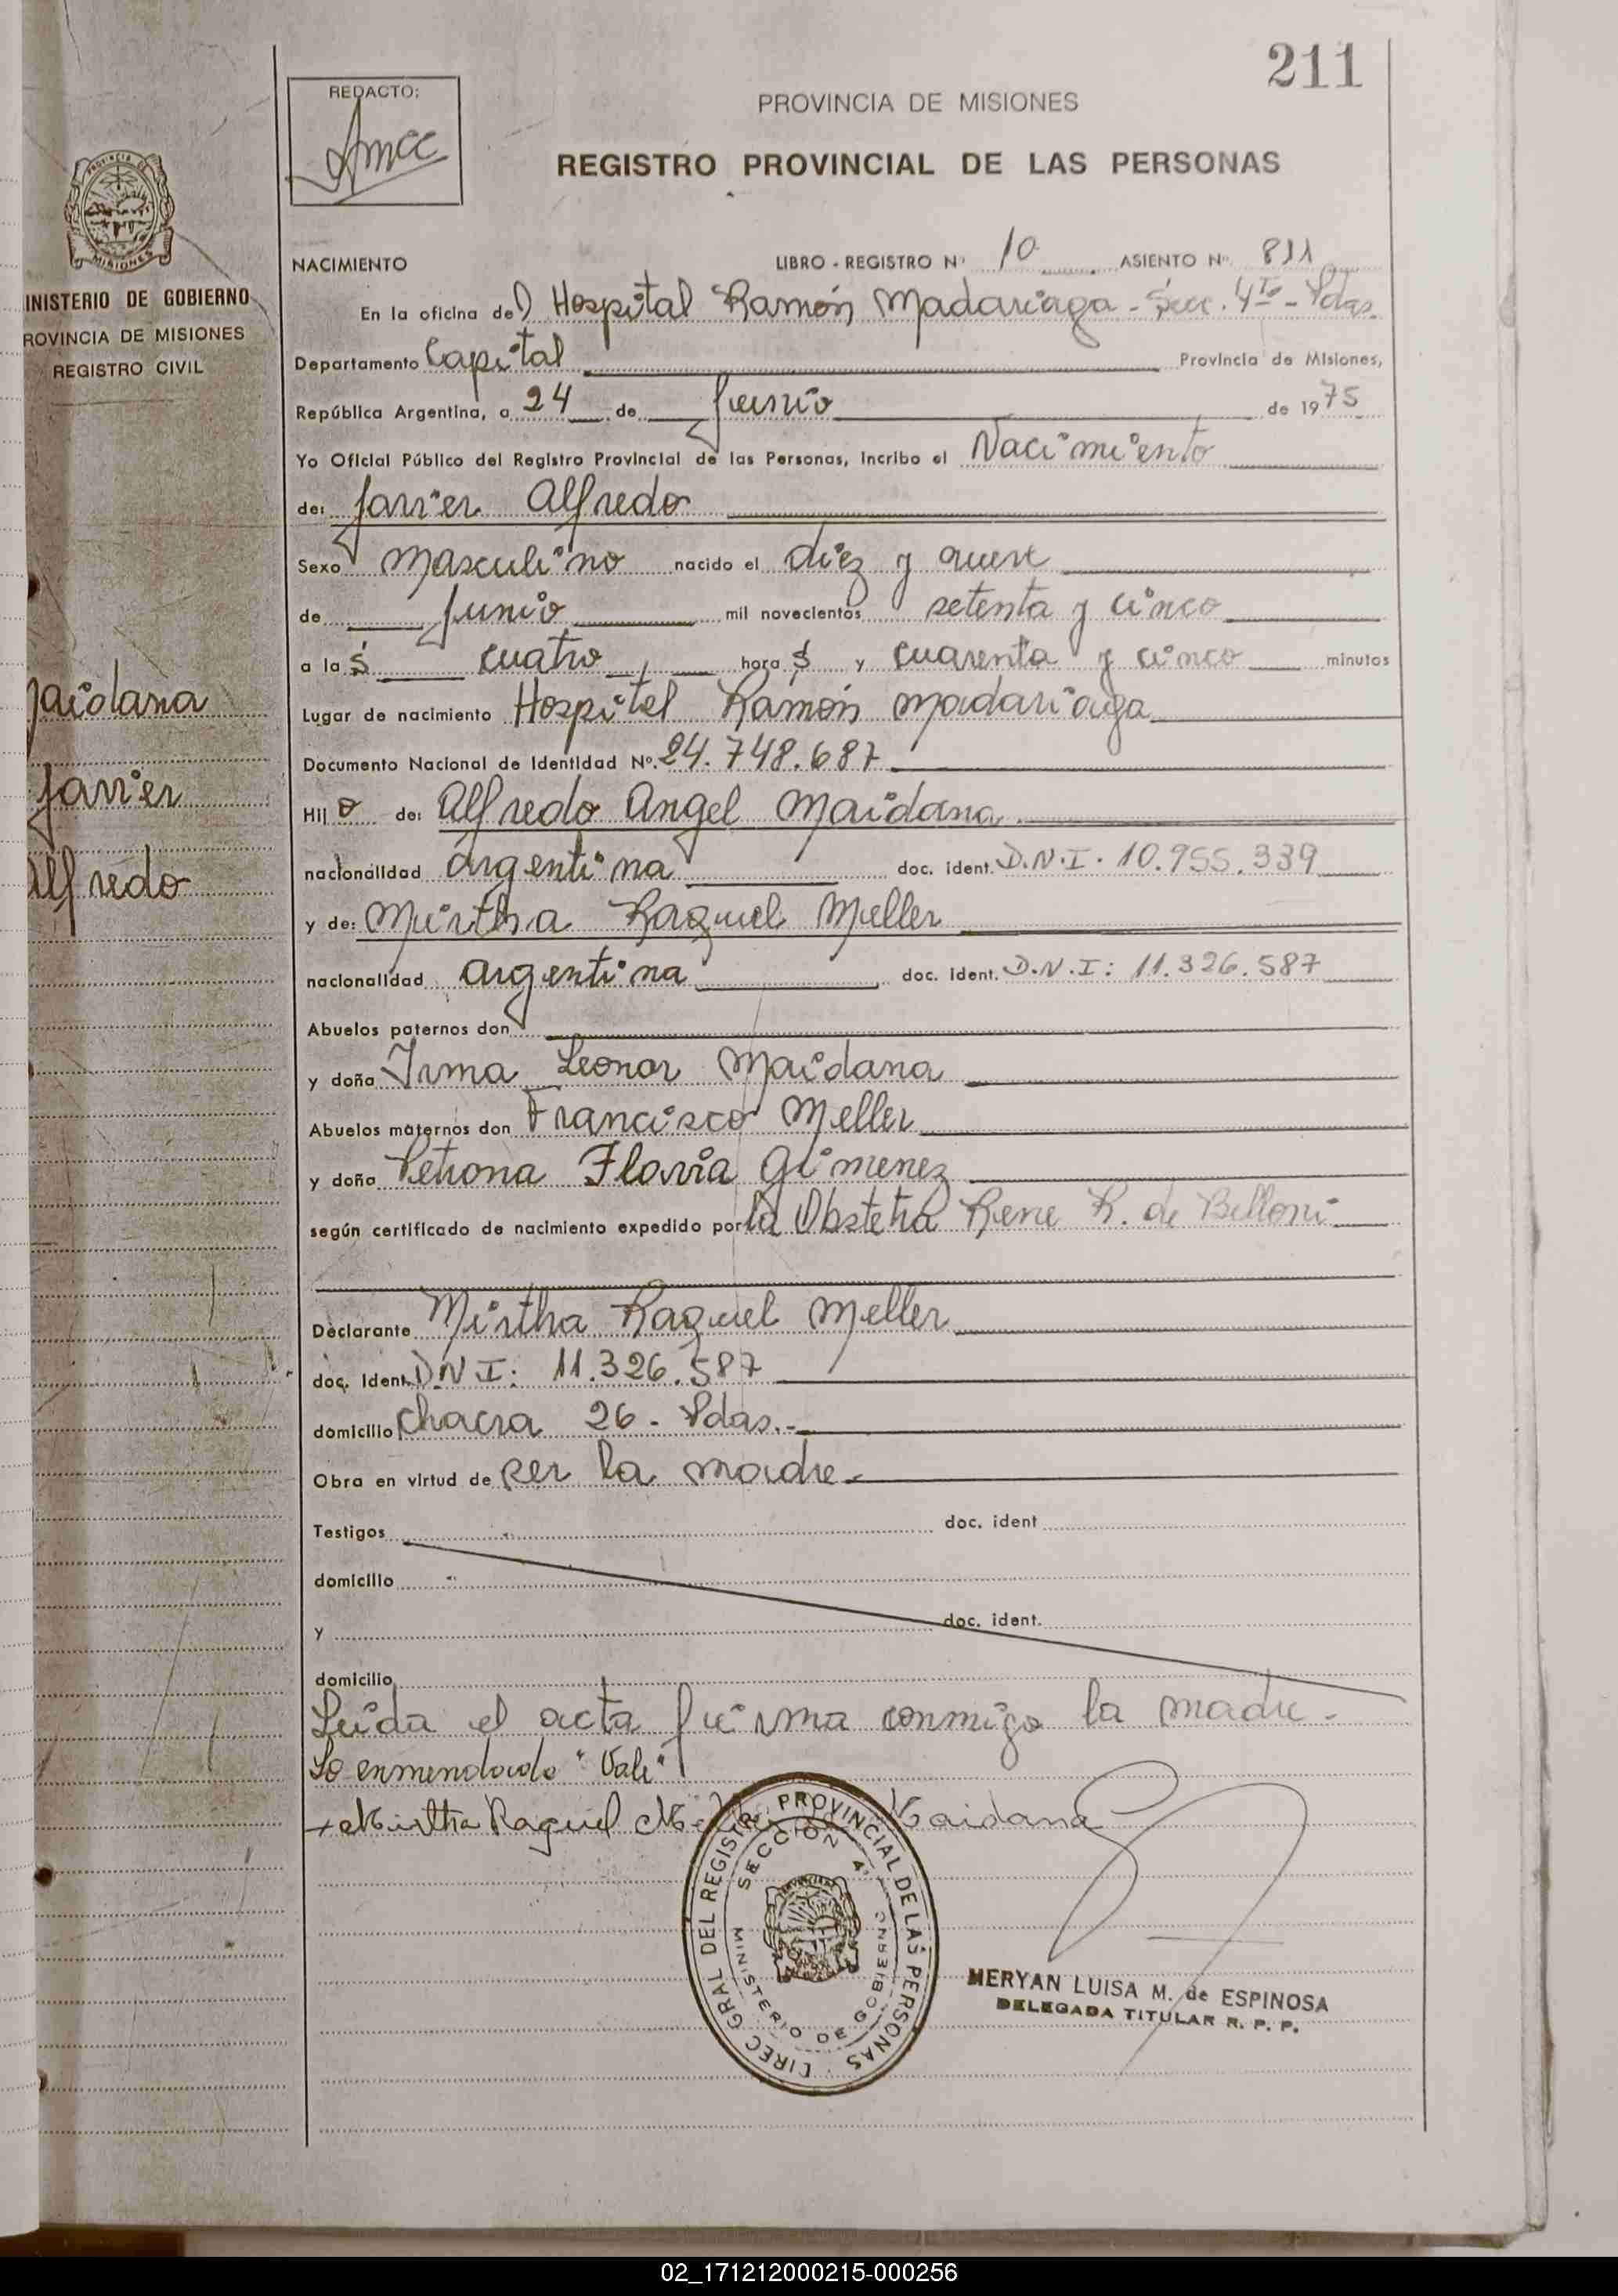 211
REDACTO:
PROVINCIA DE MISIONES
REGISTRO PROVINCIAL DE LAS PERSONAS
NACIMIENTO LIBRO - REGISTRO Nº 10 ASIENTO Nº 811
En la oficina del Hospital Ramón Madariaga - Secc. 4ta - Pdas.
Departamento Capital Provincia de Misiones,
República Argentina, a 24 de Junio de 1975
Yo Oficial Público del Registro Provincial de las Personas, incribo el Nacimiento
de: Javier Alfredo
Sexo Masculino nacido el diez y nueve
de Junio mil novecientos setenta y cinco
a las cuatro horas y cuarenta y cinco minutos
Lugar de nacimiento Hospital Ramón Madariaga
Documento Nacional de Identidad Nº. 24.748.687
Hijo de: Alfredo Angel Maidana
nacionalidad argentina doc. ident. D.N.I. 10.955.339
y de: Mirtha Raquel Meller
nacionalidad argentina doc. ident. D.N.I: 11.326.587
Abuelos paternos don
y doña Irma Leonor Maidana
Abuelos maternos don Francisco Meller
y doña Petrona Flavia Gimenez
según certificado de nacimiento expedido por la Obstetra Rene R. de Belloni
Declarante Mirtha Raquel Meller
doc. Ident. D.N.I: 11.326.587
domicilio chacra 26 - Pdas.-
Obra en virtud de ser la madre-
Testigos doc. ident
domicilio
y doc. ident.
domicilio
Leida el acta firma conmigo la madre-
Lo enmendado "Vale"
Mirtha Raquel Maidana
DIREC GRAL DEL REGISTR. PROVINCIAL DE LAS PERSONAS
SECCION 4ª
MINISTERIO DE GOBIERNO
MERYAN LUISA M. de ESPINOSA
DELEGADA TITULAR R. P. P.
PROVINCIA DE
MISIONES
INISTERIO DE GOBIERNO
ROVINCIA DE MISIONES
REGISTRO CIVIL
Maidana
Javier
Alfredo
02_171212000215-000256